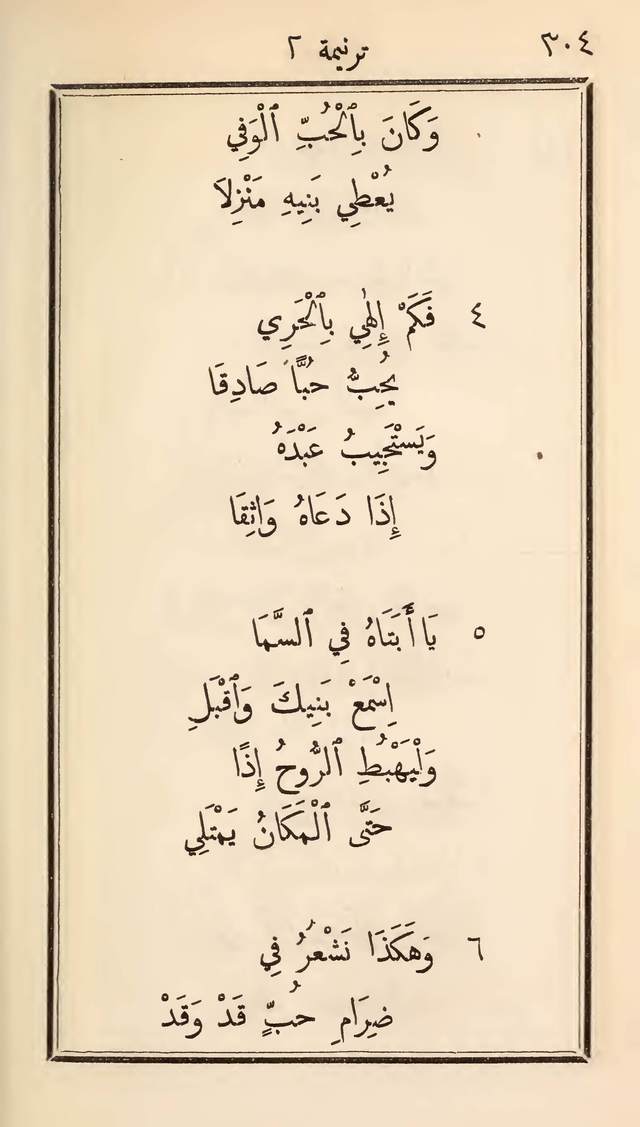 ٣٠٤
ترنيمة ٢
وَكَانَ بِٱلْحُبِّ ٱلْوَفِي
يُعْطِي بَنِيهِ مَنْزِلَا
٤ فَكَمْ إِلٰهِي بِٱلْحَرِي
يُحِبُّ حُبًّا صَادِقَا
وَيَسْتَجِيبُ عَبْدَهُ
إِذَا دَعَاهُ وَاثِقَا
٥ يَا أَبَتَاهُ فِي ٱلسَّمَا
اِسْمَعْ بَنِيكَ وَٱقْبَلِ
وَلْيَهْبُطِ ٱلرُّوحُ إِذًا
حَتَّى ٱلْمَكَانُ يَمْتَلِي
٦ وَهَكَذَا نَشْعُرُ فِي
ضِرَامِ حُبٍّ قَدْ وَقَدْ